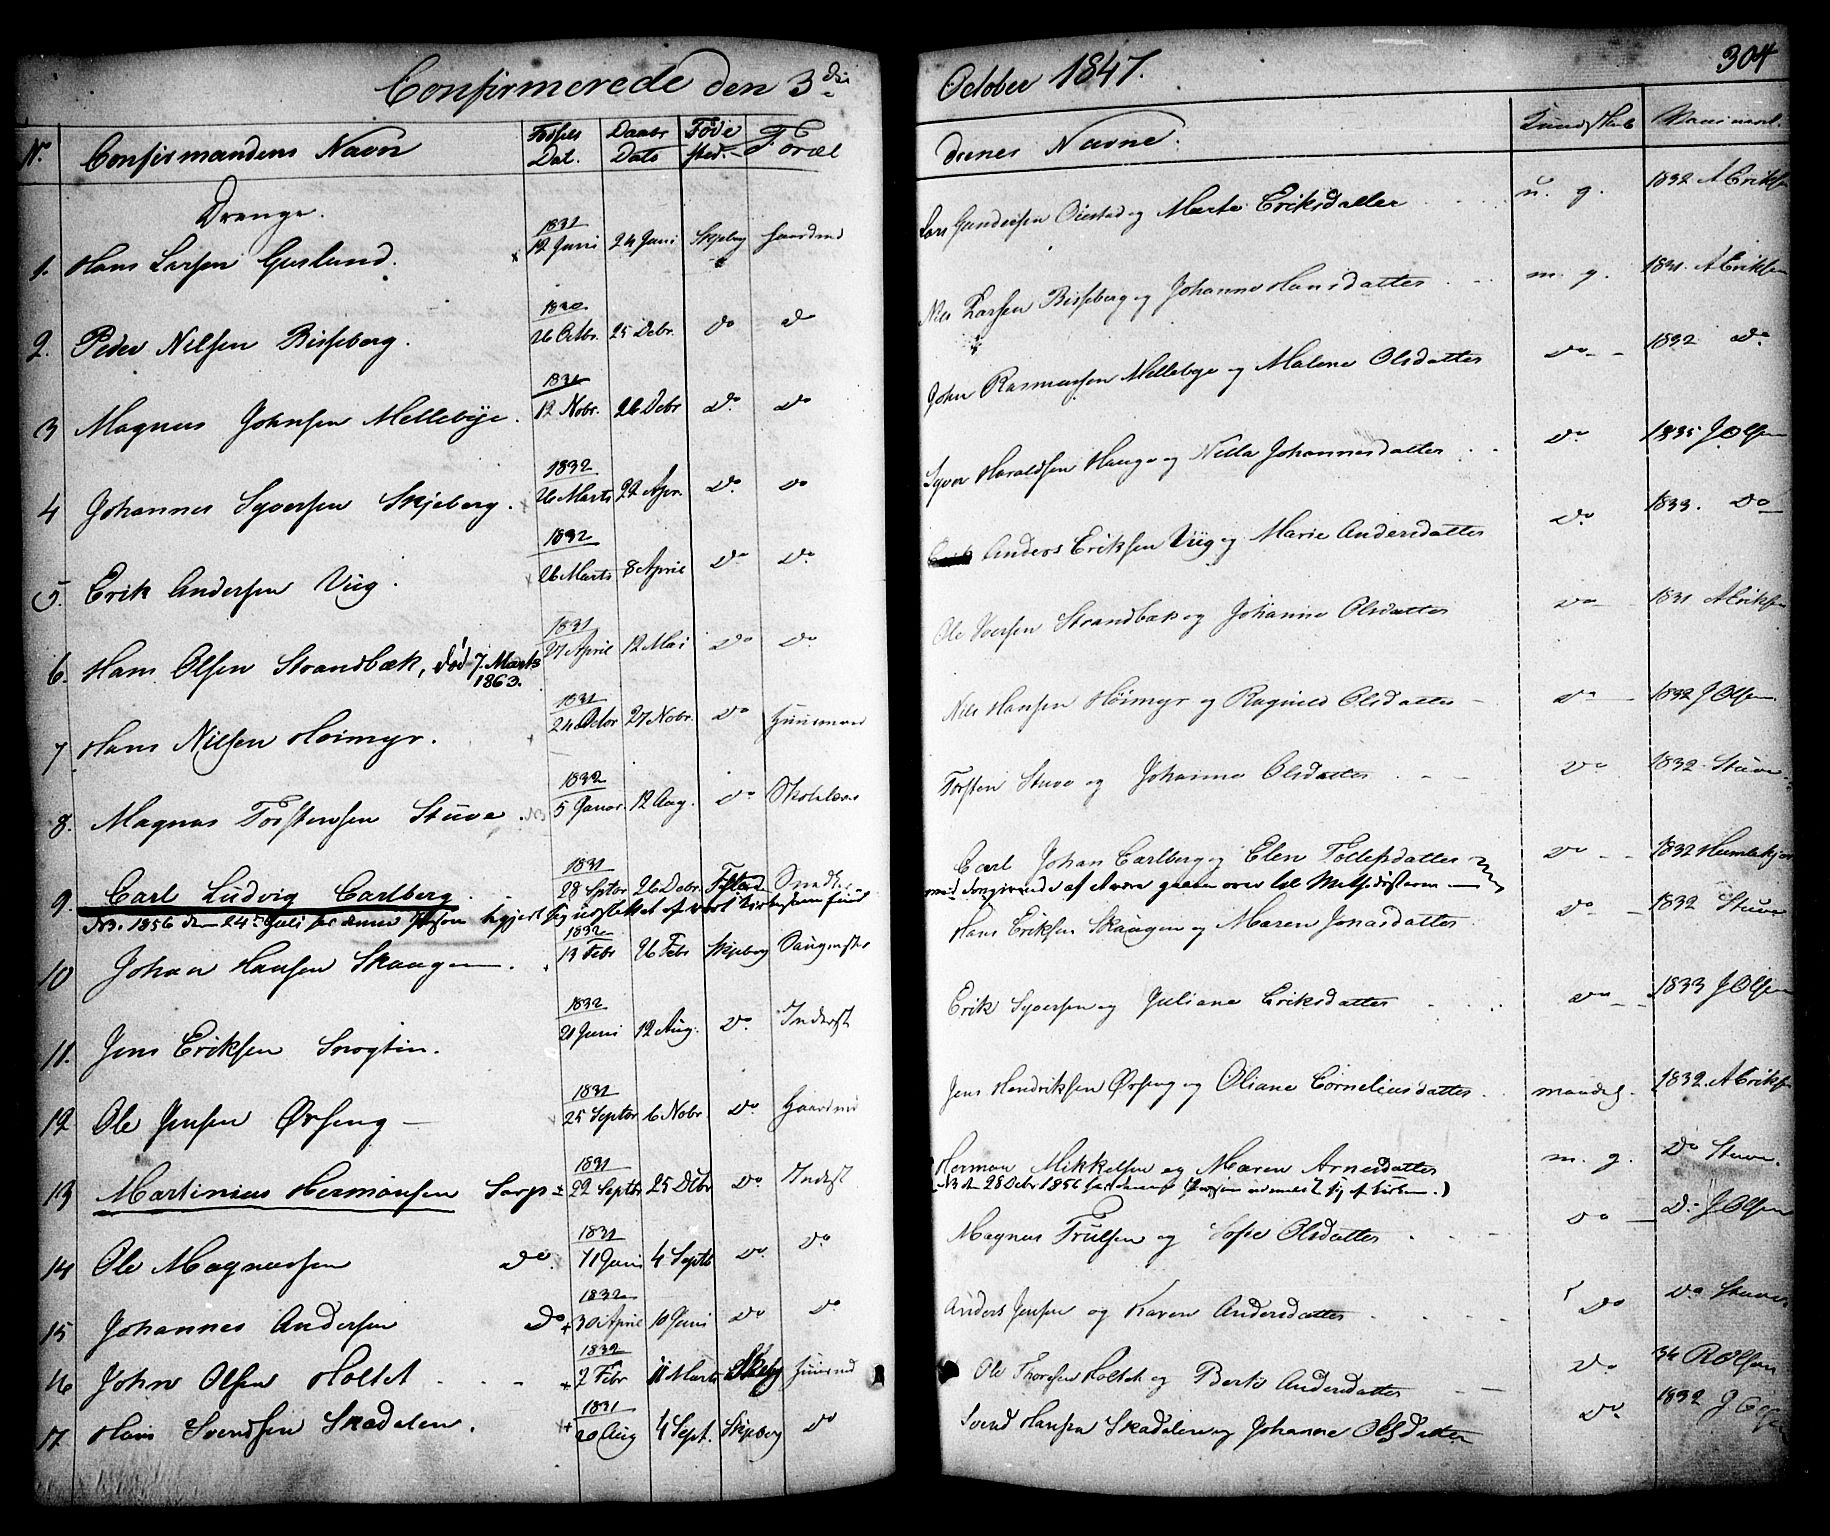 Confirmerede den 3die October 1847. 304
No Confirmandens Navn Fødsels Dat. Daabs Dato Føde sted. Foræl drenes Navne. Kundskab Vaccineret.
Drenge.
1. Hans Larsen Guslund. 1831 12 Juni 24 Juni Skjeberg Gaardmd Lars Gundersen Oiestad og Marte Eriksdatter u. g. 1832 A Eriksen
2. Peder Nilsen Bisseberg. 1830 26 Octbr. 25 Debr. do do Nils Larsen Bisseberg og Johanne Hansdatter m. g. 1831. A Eriksen
3 Magnus Johnsen Mellebye. 1831 12 Nobr. 26 Debr do do John Rasmussen Mellebye og Malene Olsdatter do 1832 do
4 Johannes Syversen Skjeberg. 1832 26 Marts 22 Apr. do do Syver Haraldsen Hauge og Nilla Johannesdatter do 1835 J Olsen
5. Erik Andersen Viig. 1832 26 Marts 8 April do do Anders Eriksen Viig og Marie Andersdatter do 1833. do
6. Hans Olsen Strandbæk, død 7. Marts 1863. 1831 27 April 12 Mai do do Ole Iversen Strandbæk og Johanne Olsdatter do 1831 A Eriksen
7 Hans Nilsen Høimyr. 1831 24 Octbr 27 Nobr. do Huusmand Nils Hansen Høimyr og Ragnild Olsdatter do 1832 J Olsen
8. Magnus Torstensen Stuve. NB 1832 5 Januar 12 Aug. do Skolelærer Torsten Stuve og Johanne Olsdatter do 1832 Stuve
9. Carl Ludvig Carlberg. 1831 28 Septbr 26 Debr. Carl Johan Carlberg og Elen Tollefsdatter do 1832
NB. 1856 den 24de Juli har denne Person begjert sig udslettet af vort Kirkesamfund
med Angivende af at være gaaen over til Methodisterne
10 Johan Hansen Skaugen. 1832 13 Febr 26 Febr Skjeberg Hans Eriksen Skaugen og Maren Jonasdatter do 1832 Stuve
11. Jens Eriksen Snogtin. 1832 21 Juni 12 Aug. do Inderst Erik Syversen og Juliane Eriksdatter do 1833 J Olsen
12 Ole Jensen Ørseng 1831 25 Septbr 6 Nobr. do Gaardmd Jens Hendriksen Ørseng og Oliane Corneliusdatter maadel. 1832. A Eriksen
13 Martinius Hermansen Sarp 1831 22 Septbr 25 Debr do Inderst Herman Mikkelsen og Maren Arnesdatter m. g. do Stuve.
NB den 28 Octbr 1856 har denne Person udmeldt sig af Kirken.)
14 Ole Magnussen do 1831 11 Juni 4 Septb do. do Magnus Trulsen og Sofie Olsdatter do do J Olsen
15 Johannes Andersen do 1832 30 April 10 Juni do do Anders Jensen og Karen Andersdatter do do Stuve
16 John Olsen Holtet 1832 2 Febr 11 Marts Skjebg Huusmd Ole Thoresen Holtet og Berte Andersdatter do 34 R Olsen
17. Hans Svendsen Skadalen. 1831 20 Aug 4 Sept. Skjeberg do Svend Hansen Skadalen og Johanne Olsdatter do 1832 J